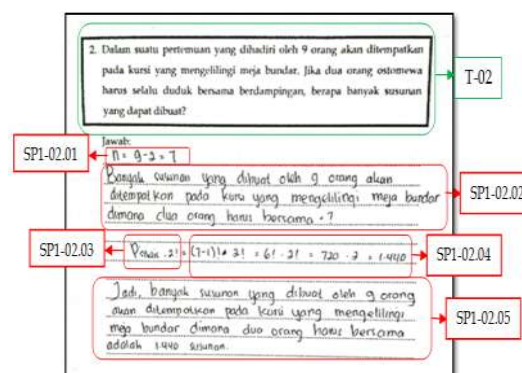 2. Dalam suatu pertemuan yang dihadiri oleh 9 orang akan ditempatkan
pada kursi yang mengelilingi meja bundar. Jika dua orang ostomewa
harus selalu duduk bersama berdampingan, berapa banyak susunan
yang dapat dibuat?
T-02
Jawab:
SP1-02.01
n = 9-2 = 7
Banyak susunan yang dibuat oleh 9 orang akan
ditempatkan pada kursi yang mengelilingi meja bundar
dimana dua orang harus bersama = ?
SP1-02.02
SP1-02.03
. 2! = (7-1)! . 2! = 6! . 2! = 720 . 2 = 1.440
SP1-02.04
Jadi, banyak susunan yang dibuat oleh 9 orang
akan ditempatkan pada kursi yang mengelilingi
meja bundar dimana dua orang harus bersama
adalah 1.440 susunan.
SP1-02.05